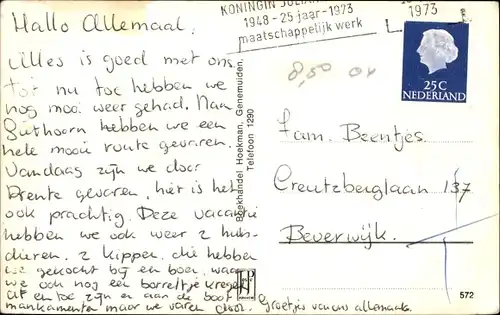 Hallo Allemaal.
Alles is goed met ons.
tot nu toe hebben we
nog mooi weer gehad. Naar
Giethoorn hebben we een
hele mooie route gevaren.
Vandaag zijn we door
Drente gevaren, hier is het
ook prachtig. Deze vacantie
hebben we ook weer 2 huis-
dieren. 2 kippen, die hebben
we gekocht bij een boer, waar
we ook nog een borreltje kregen
af en toe zijn er aan de boot
mankementen maar we varen door.
Groetjes van ons allemaal.
Boekhandel Hoekman, Genemuiden.
Telefoon 1290
KONINGIN
1948-25 jaar-1973
maatschappelijk werk
1973
25C
NEDERLAND
8,50
Fam. Beentjes.
Creutzberglaan 137
Beverwijk.
572